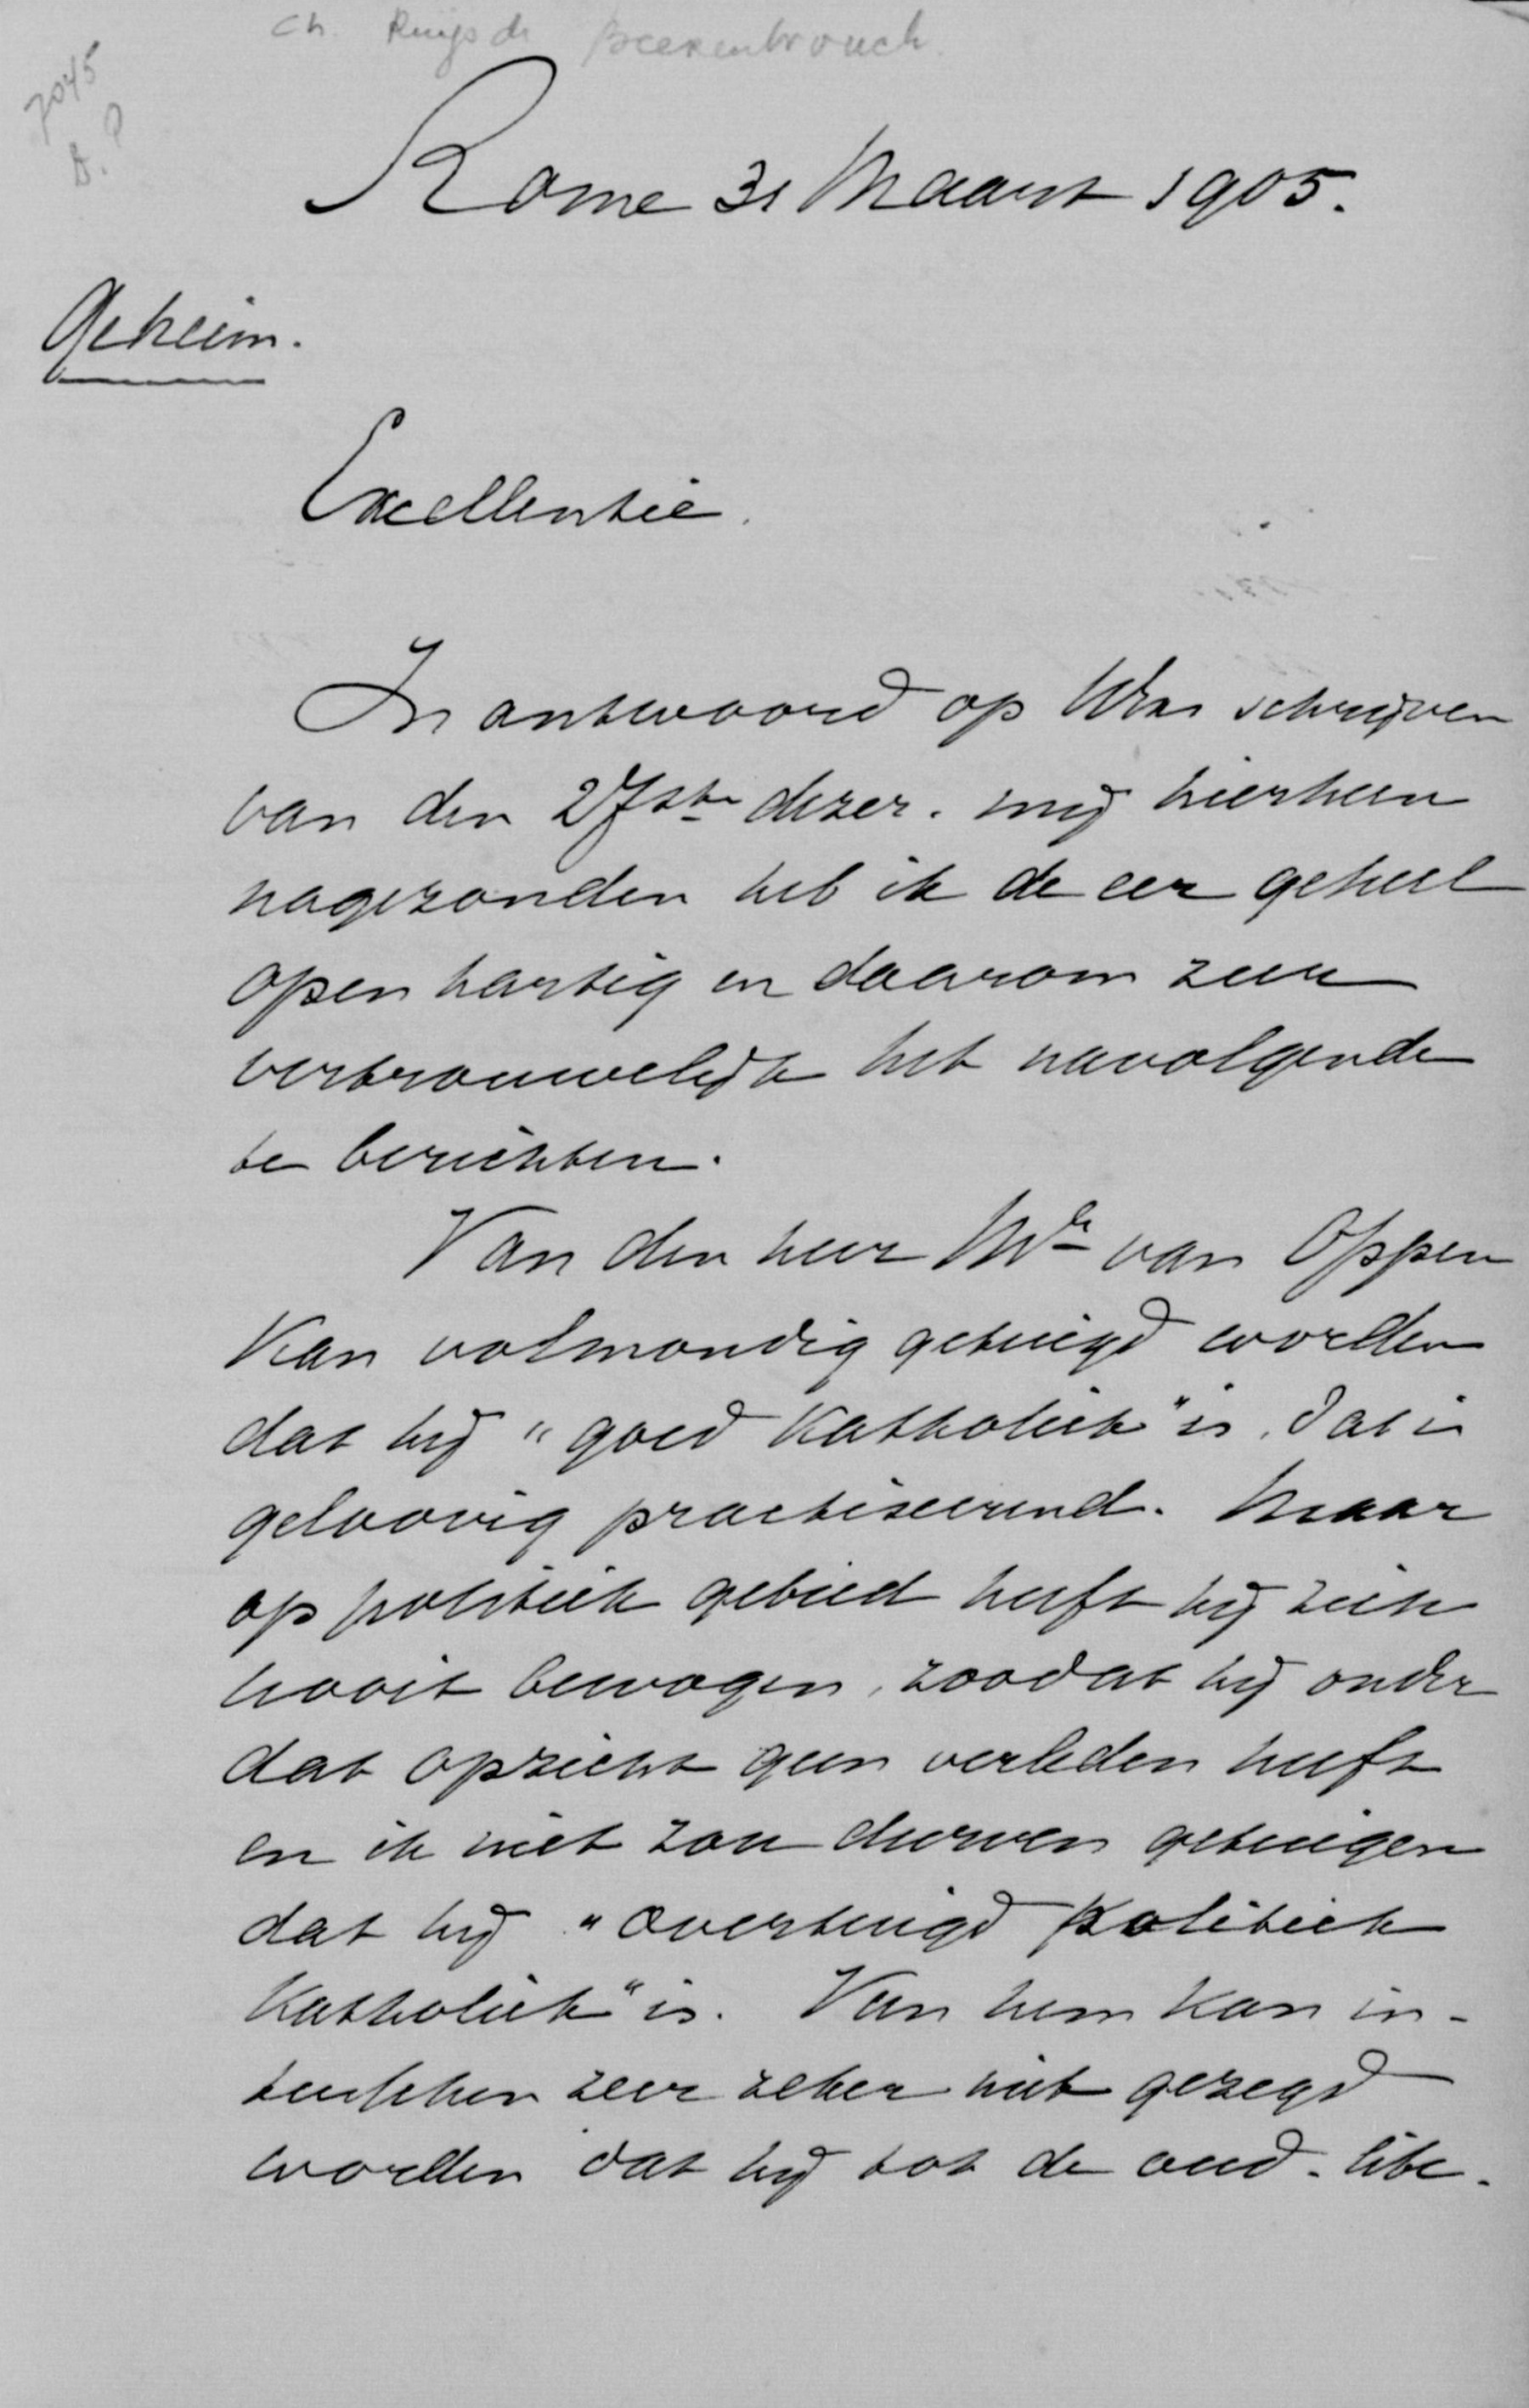 Ch. Ruijs de Beerenbrouck.
7045
Rome 31 Maart 1905.
Geheim.
Excellentie.
In antwoord op Uwer schrijven
van den 27ste dezer. mij hierheen
nagezonden heb ik de eer geheel
openhartig en daarom zeer
vertrouwelijk het navolgende
te berichten.
Van den heer Mr van Oppen
kan volmondig getuigd worden
dat hij "goed Katholiek" is, dat is
geloovig practiseerend. Maar
op politiek gebied heeft hij zich
nooit bewogen, zoodat hij onder
dat opzicht geen verleden heeft
en ik niet zou durven getuigen
dat hij "overtuigd politiek
Katholiek" is. Van hem kan in-
tusschen zeer zeker niet gezegd
worden dat hij tot de oud-libe-